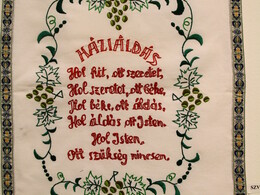 HÁZIÁLDÁS
Hol hit, ott szeretet,
Hol szeretet, ott béke,
Hol béke, ott áldás,
Hol áldás ott Isten.
Hol Isten,
Ott szükség nincsen.